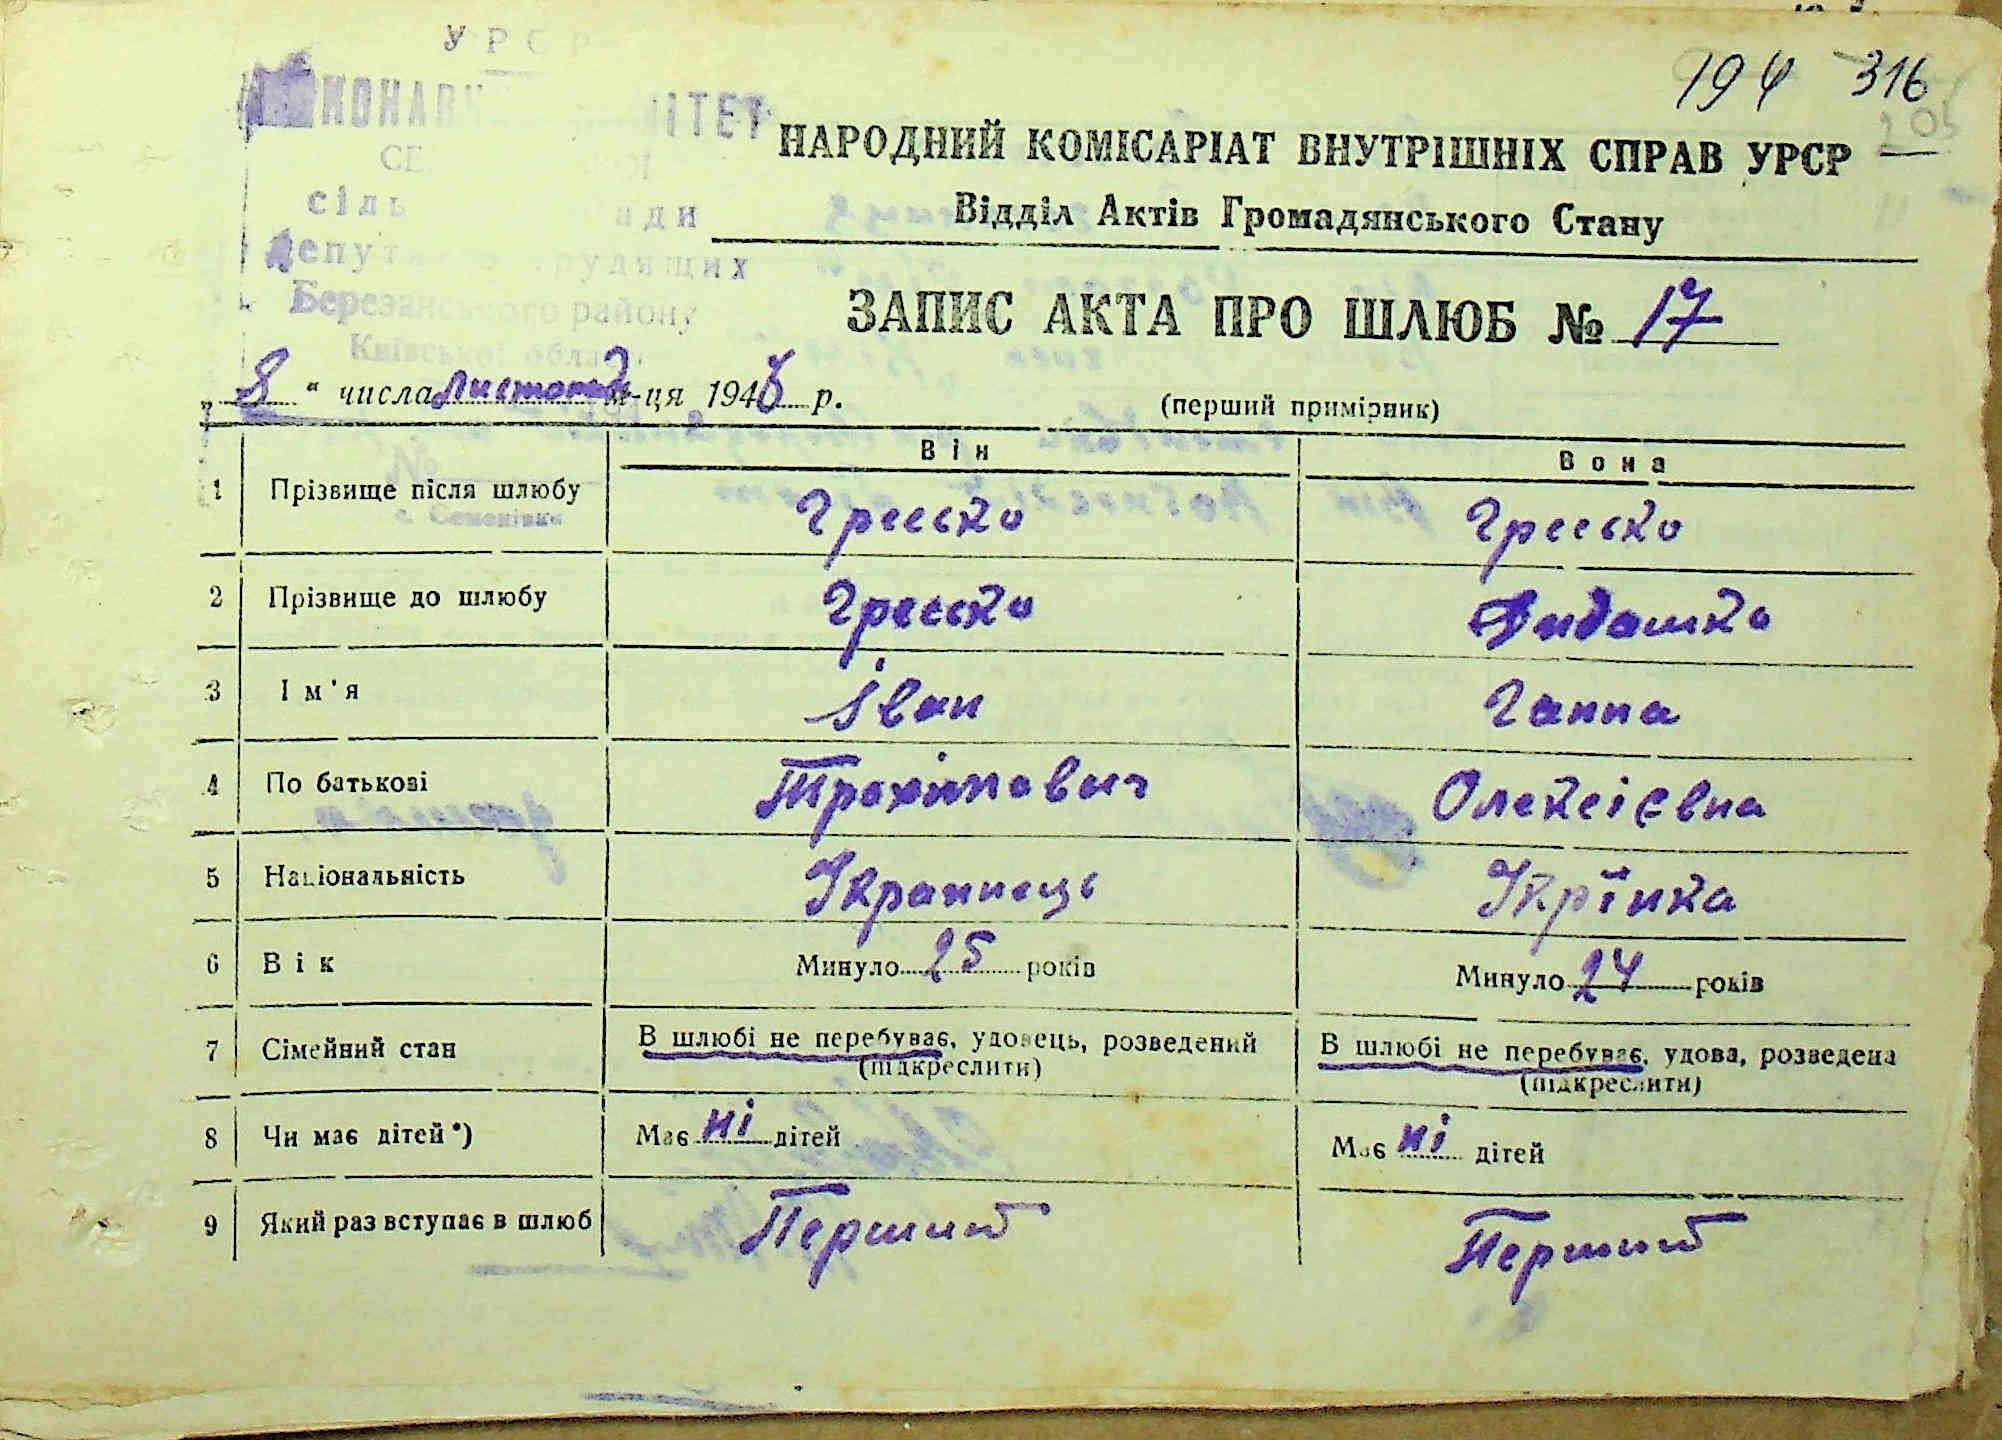 УРСР
194 316
205
НАРОДНИЙ КОМІСАРІАТ ВНУТРІШНІХ СПРАВ УРСР
Відділ Актів Громадянського Стану
Березанського району
Київської області
с. Семенівка
ЗАПИС АКТА ПРО ШЛЮБ № 17
„ 8 “ числа листопад м-ця 1946 р.
(перший примірник)
Він Вона
1 Прізвище після шлюбу Гресько Гресько
2 Прізвище до шлюбу Гресько Дидашко
3 Ім'я Іван Ганна
4 По батькові Трохимович Олексієвна
5 Національність Українець Укрїнка
6 Вік Минуло 25 років Минуло 24 років
7 Сімейний стан В шлюбі не перебуває, удовець, розведений В шлюбі не перебуває, удова, розведена
(підкреслити) (підкреслити)
8 Чи має дітей*) Має ні дітей Має ні дітей
9 Який раз вступає в шлюб Перший Перший